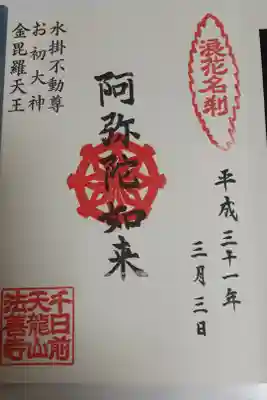 浪花名刹
平成三十一年
三月三日
阿弥陀如来
水掛不動尊
お初大神
金毘羅天王
千日前
天龍山
法善寺